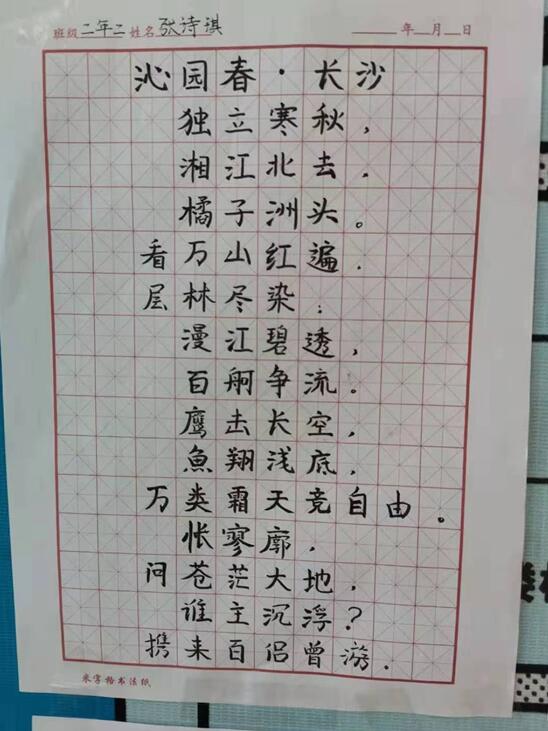 班级 二年二 姓名 张诗淇 年 月 日
沁园春·长沙
独立寒秋，
湘江北去，
橘子洲头。
看万山红遍，
层林尽染；
漫江碧透，
百舸争流。
鹰击长空，
魚翔浅底，
万类霜天竞自由。
怅寥廓，
问苍茫大地，
谁主沉浮？
携来百侣曾游．
米字格书法纸